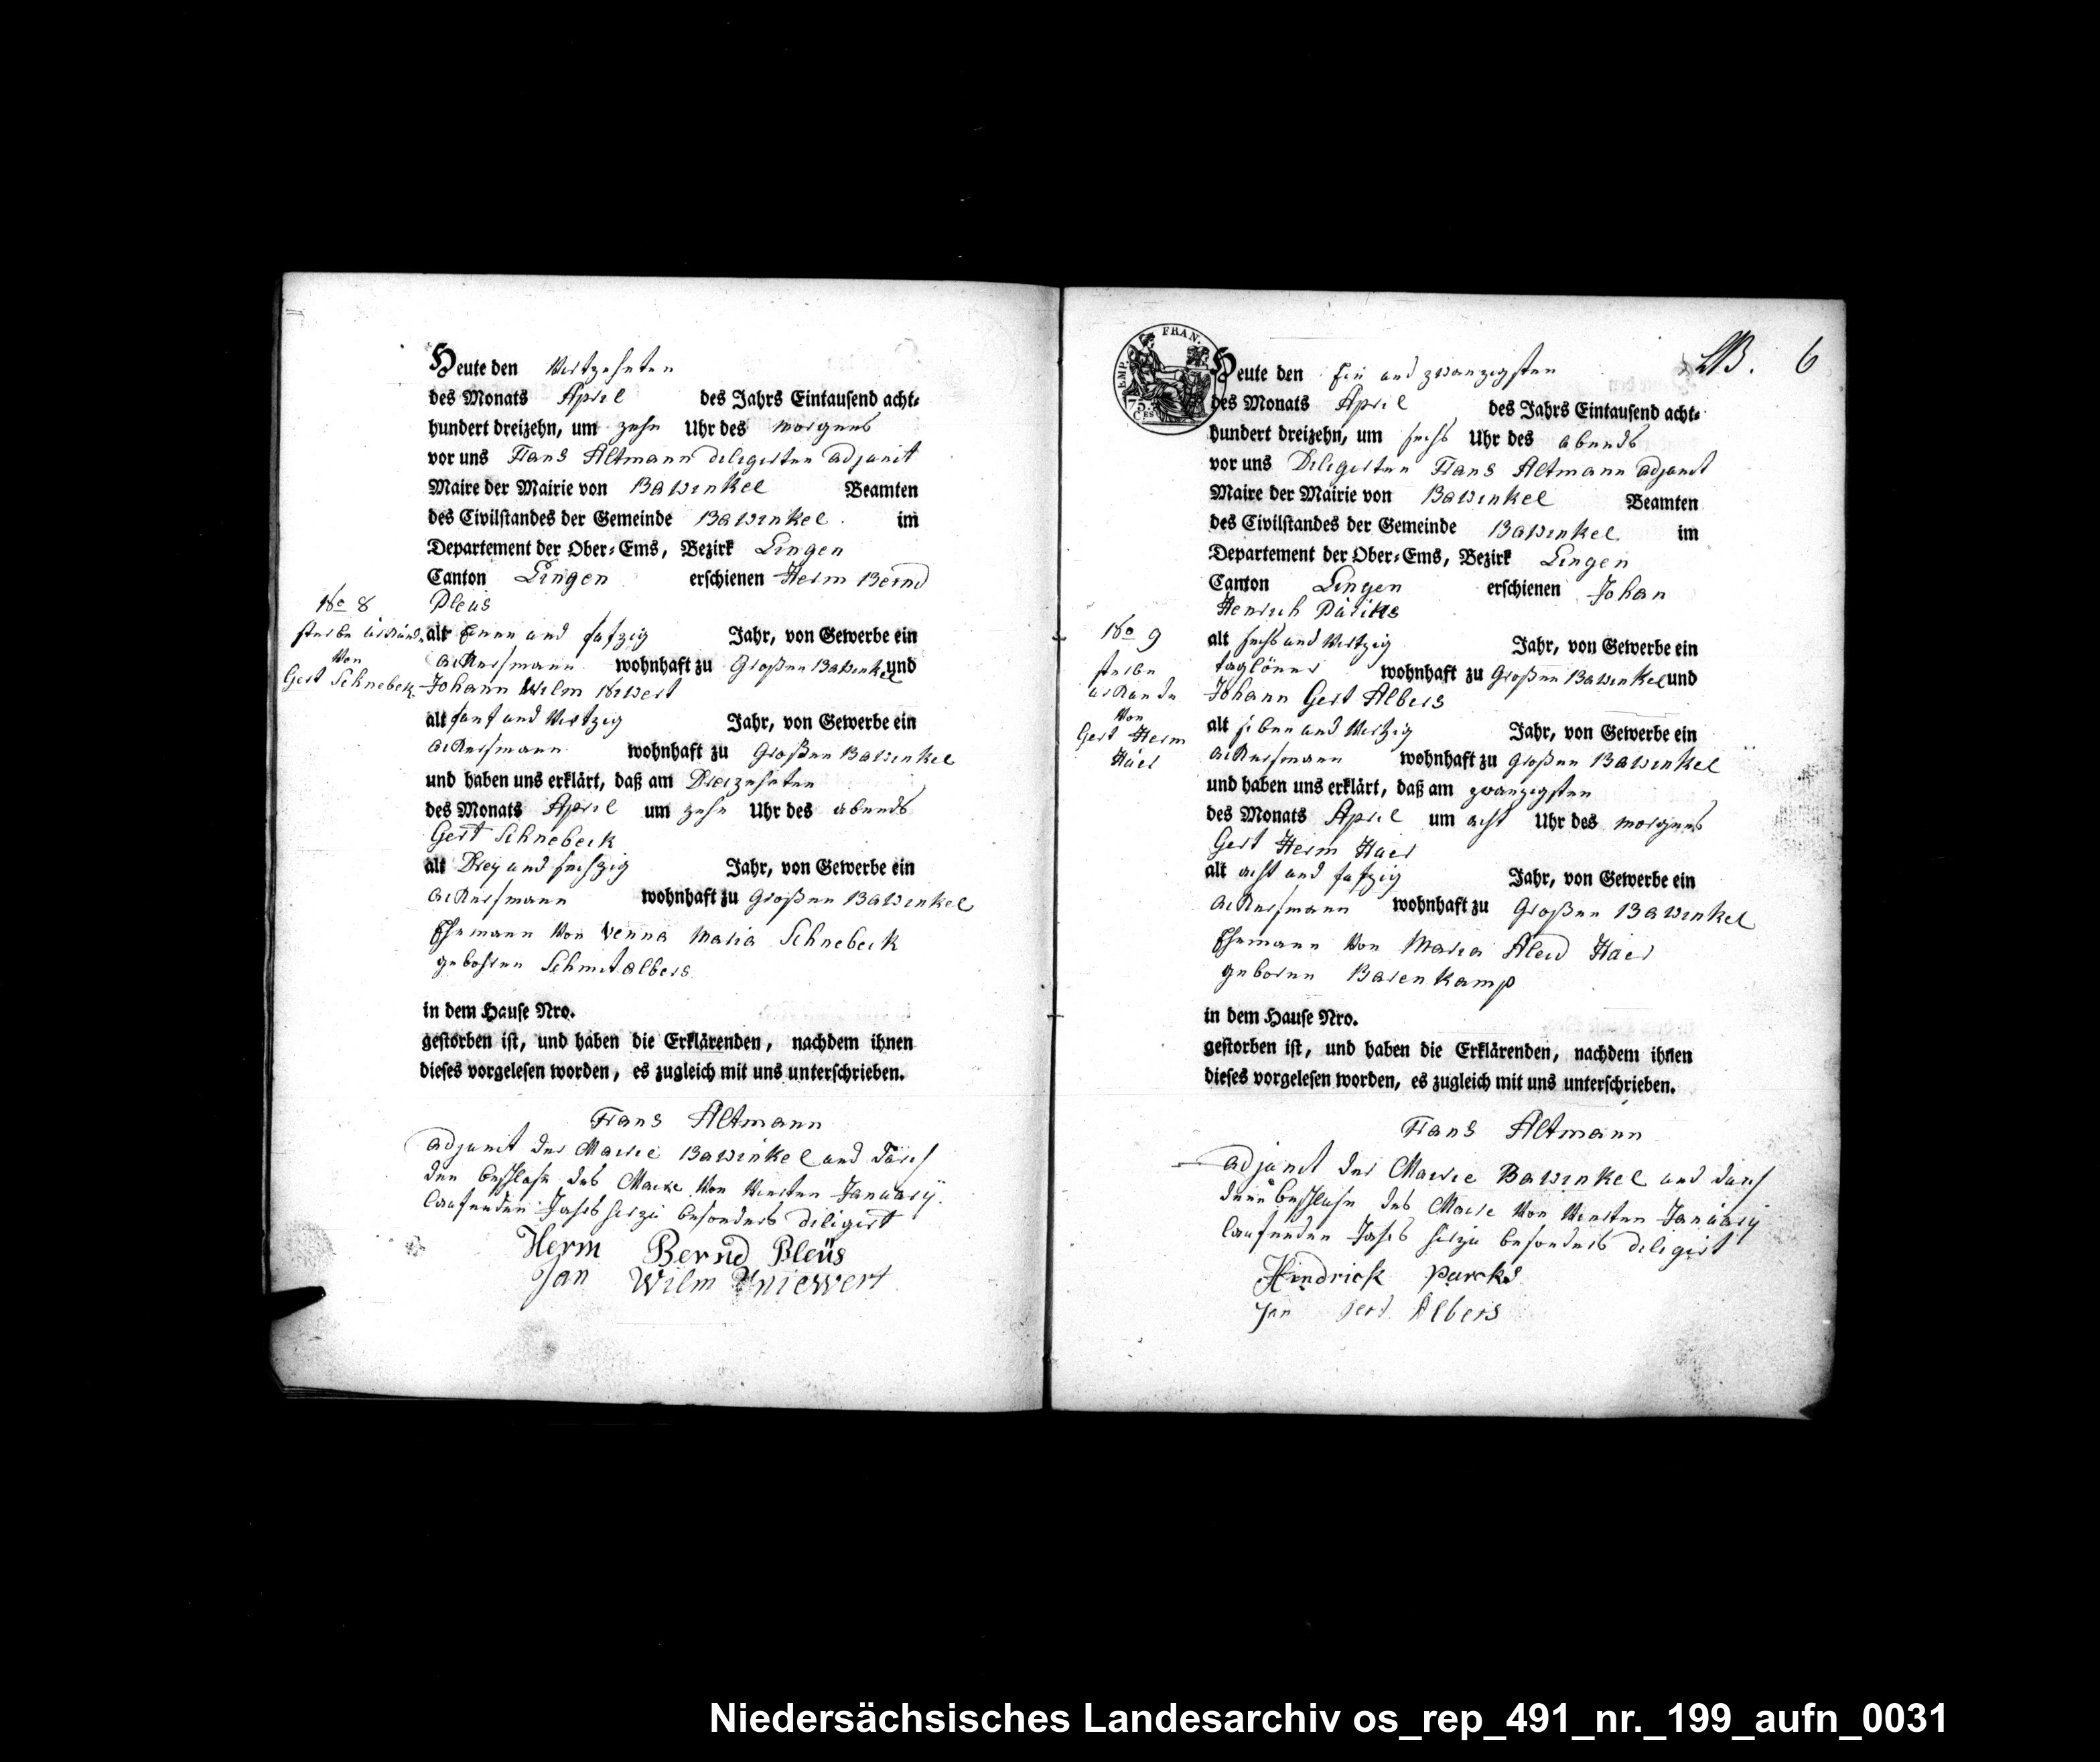 Heute den Viertzehnten
des Monats April des Jahrs Eintausend acht-
hundert dreizehn, um zehn Uhr des morgens
vor uns Frans Altmann deligirten adjunct
Maire der Mairie von Bawinkel Beamten
des Civilstandes der Gemeinde Bawinkel. im
Departement der Ober-Ems, Bezirk Lingen
Canton Lingen erschienen Herm Bernd
No 8
Pleüs
sterbe
von
Gert Schnebek
alt Einen und fufzig Jahr, von Gewerbe ein
ackersmann wohnhaft zu Großen Bawinkel und
Johann Wilm
alt funf und Viertzig Jahr, von Gewerbe ein
ackersmann wohnhaft zu Großen Bawinkel
und haben uns erklärt, daß am Dreizehnten
des Monats April um zehn Uhr des abends
Gert Schnebeck
alt Drey und sechszig Jahr, von Gewerbe ein
ackersmann wohnhaft zu Großen Bawinkel
Ehemann Von Venna Maria Schnebeck
gebohren Schmitalbers
in dem Hause Nro.
gestorben ist, und haben die Erklärenden, nachdem ihnen
dieses vorgelesen worden, es zugleich mit uns unterschrieben.
Frans Altmann
adjunct der Mairie Bawinkel und dürch
den beschluse des Maire Von Viersten Januarÿ
laufenden Jahrs hirzü besonders diligirt
Herm Bernd Pleüs
Jan Wilm Niewert
EMP. FRAN.
75.
CES
6
Heute den Ein und zwanzigsten
des Monats April des Jahrs Eintausend acht-
hundert dreizehn, um sechs Uhr des abends
vor uns Deligirten Frans Altmann adjunct
Maire der Mairie von Bawinkel Beamten
des Civilstandes der Gemeinde Bawinkel. im
Departement der Ober-Ems, Bezirk Lingen
Canton Lingen erschienen Johan
Henrich
No 9
sterbe
urkunde
Von
Gert Herm
Häer
alt sechs und Viertzig Jahr, von Gewerbe ein
taglöner wohnhaft zu Großen Bawinkel und
Johann Gert Albers
alt siben und Viertzig Jahr, von Gewerbe ein
ackersmann wohnhaft zu Großen Bawinkel
und haben uns erklärt, daß am zwanzigsten
des Monats April um acht Uhr des morgens
Gert Herm Haer
alt acht und fufzig Jahr, von Gewerbe ein
ackersmann wohnhaft zu Großen Bawinkel
Ehemann Von Maria Aleid Haer
geboren Barenkamp
in dem Hause Nro.
gestorben ist, und haben die Erklärenden, nachdem ihnen
dieses vorgelesen worden, es zugleich mit uns unterschrieben.
Frans Altmann
adjunct der Mairie Bawinkel und durch
beschluse des Maire Von Viersten Januarÿ
laufenden Jahrs hirzu besonders deligirt
Hindrick
Jan Gerd Albers
Niedersächsisches Landesarchiv os_rep_491_nr._199_aufn_0031